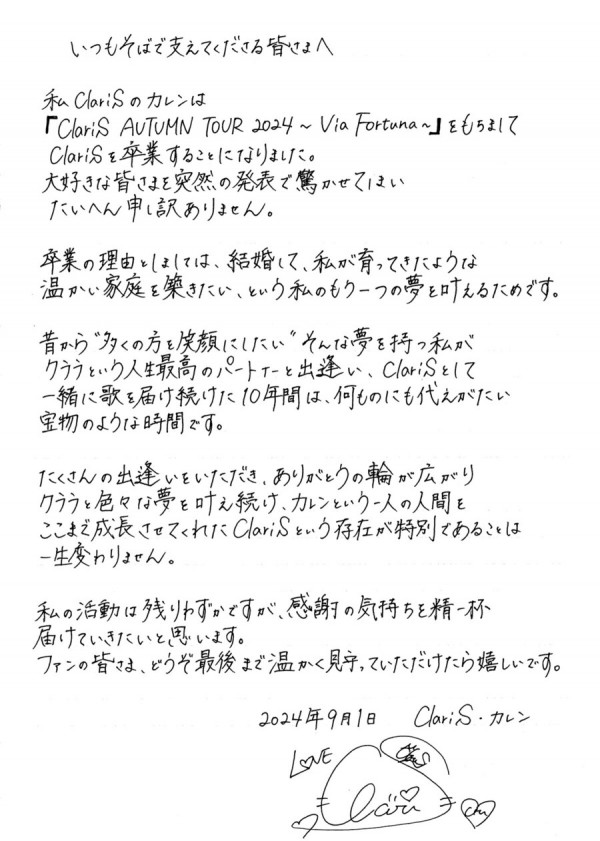 いつもそばで支えてくださる皆さまへ
私ClariSのカレンは
『ClariS AUTUMN TOUR 2024 ～ Via Fortuna～』をもちまして
ClariSを卒業することになりました。
大好きな皆さまを突然の発表で驚かせてしまい
たいへん申し訳ありません。
卒業の理由としましては、結婚して、私が育ってきたような
温かい家庭を築きたい、という私のもう一つの夢を叶えるためです。
昔から"多くの方を笑顔にしたい"そんな夢を持つ私が
クララという人生最高のパートナーと出逢い、ClariSとして
一緒に歌を届け続けた10年間は、何ものにも代えがたい
宝物のような時間です。
たくさんの出逢いをいただき、ありがとうの輪が広がり
クララと色々な夢を叶え続け、カレンという一人の人間を
ここまで成長させてくれたClariSという存在が特別であることは
一生変わりません。
私の活動は残りわずかですが、感謝の気持ちを精一杯
届けていきたいと思います。
ファンの皆さま、どうぞ最後まで温かく見守っていただけたら嬉しいです。
2024年9月1日 ClariS・カレン
LOVE